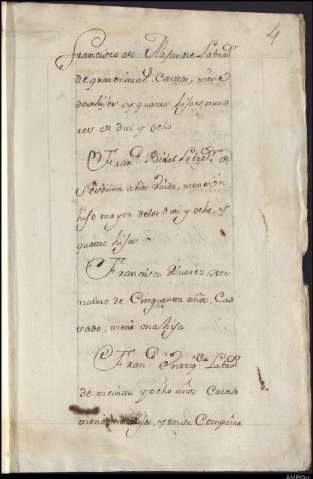 4
Francisco de Alexandre Labrad.
de quarenta a.s Casado, tiene
dos hijos y quatro hijas meno
res de diez y ocho
Fran.co Labrad.r de
Sesenta años Viudo, tiene un
hijo mayor delos diez y ocho, y
quatro hijas
Francisco Alvarez Jor
nalero de Cinquenta años, Cas
sado, tiene una hija
Fran.co Enriq.z Labrad.
de treinta y ocho años Casado
tiene hija, y en su Compañia
AHPOU